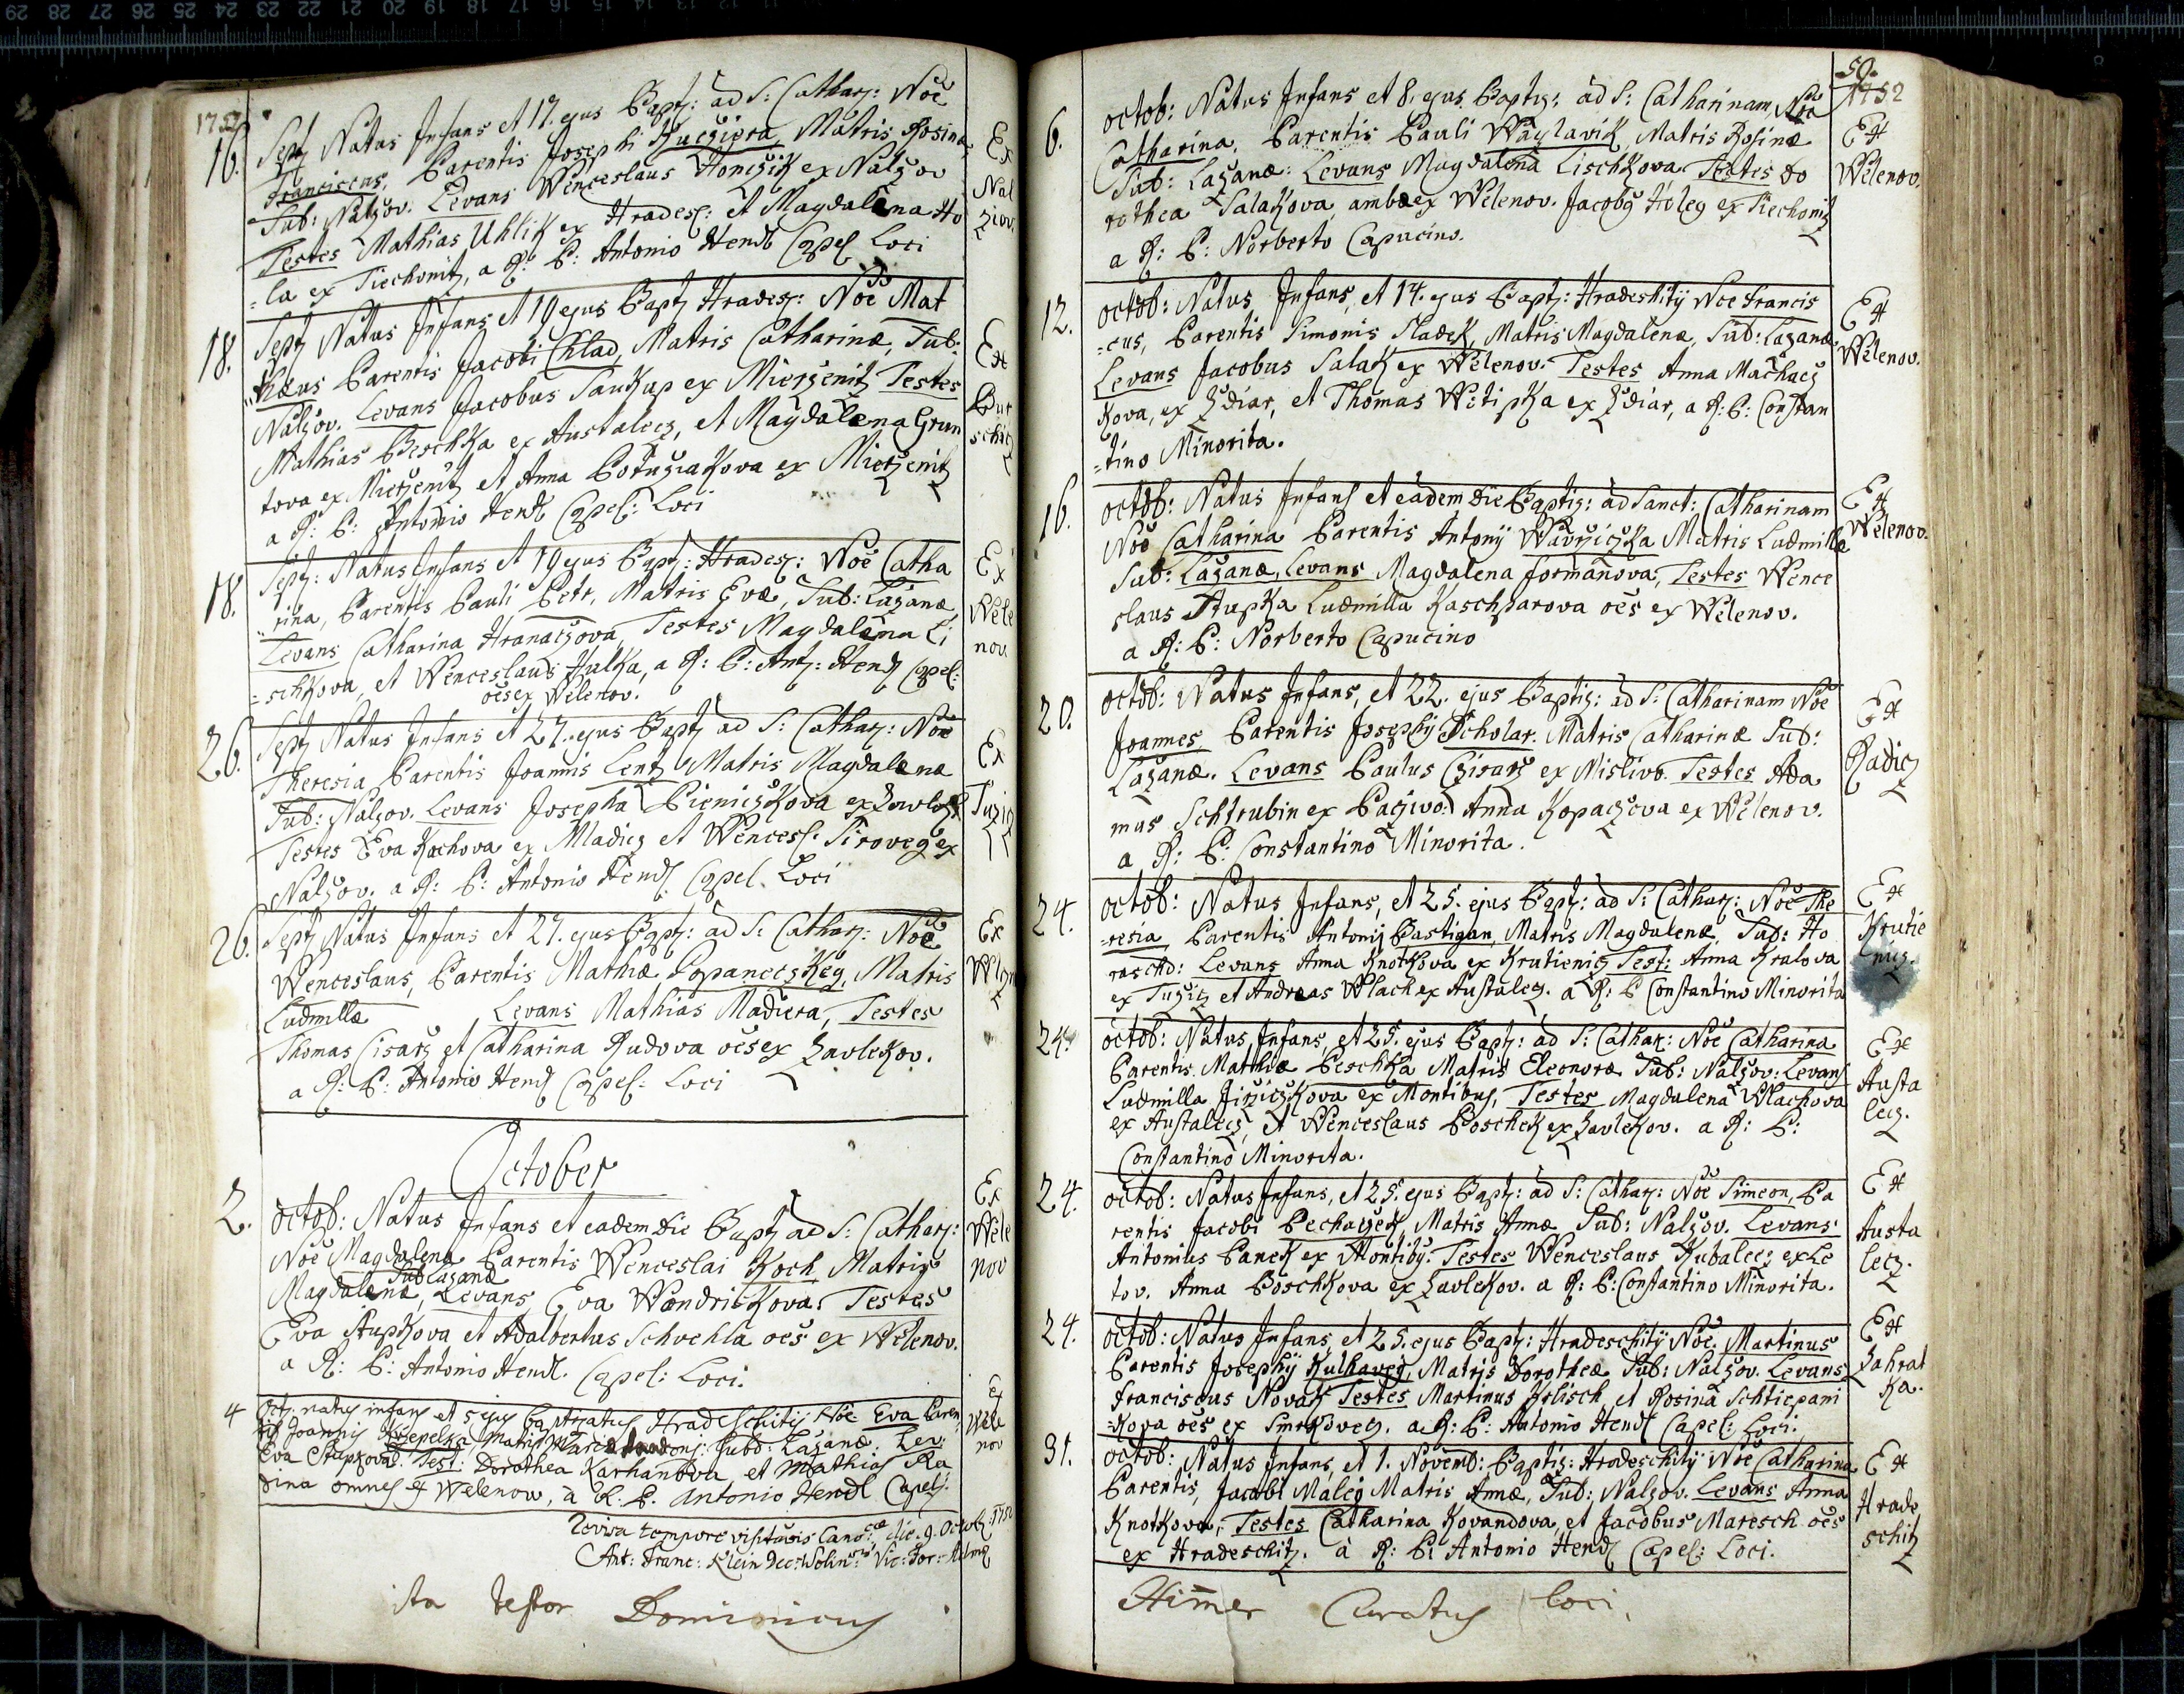 1752
16. Sept: Natus Infans et 17. ejus Bapt: ad S: Cathar: Noe
Franciscus, Parentis Josephi Kucziera, Matris Rosinæ
Sub: Nalzov. Levans Wenceslaus Honczik ex Nalzov
Testes Mathias Uhlik ex Hradesz: et Magdalena Ho
=la ex Tiechonitz, a R: P: Antonio Hendl Capel Loci
Ex
Nal
zov.
18. Sept: Natus Infans et 19 ejus Bapt: Hradesz: Noe Mat
"thæus Parentis Jacobi Chlad, Matris Catharinæ, Sub:
Nalzov. Levans Jacobus Saukup ex Mierzenitz Testes
Mathias Peschka ex Austalecz, et Magdalena Grun
tova ex Mierzenitz et Anna ex Mierzenitz
a R: P: Antonio Hendl Capel: Loci
Ex
18. Sept: Natus Infans et 19 ejus Bapt: Hradesz: Noe Catha
"rina, Parentis Pauli Petr, Matris Evæ, Sub: Lazanæ,
Levans Catharina Hranaczova, Testes Magdalena Li
=schkova, et Wenceslaus Hulka, a R: P: Ant: Hendl Capel:
oes ex Welenov.
Ex
Wele
nov.
26. Sept: Natus Infans et 27. ejus Bapt: ad S: Cathar: Noe
Theresia, Parentis Joannis Lentz Matris Magdalenæ
Sub: Nalzov. Levans Josepha Pieniczkova ex
Testes Eva Kochova ex Mladicz et Wencesl: Siroveg ex
Nalzov. a R: P: Antonio Hendl Capel. Loci
Ex
26. Sept: Natus Infans et 27. ejus Bapt: ad S: Cathar: Noe
Wenceslaus, Parentis Mathiæ Popaneczkeg, Matris
Ludmillæ Levans Mathias Madiera, Testes
Thomas Cisarz et Catharina Rudova oes ex Zavlekov.
a R: P: Antonio Hendl Capel: Loci
Ex
October
2. octob: Natus Infans et eadem die Bapt: ad S: Cathar:
Noe Magdalena Parentis Wenceslai Koch Matris
Sub Lazanæ
Magdalenæ, Levans Eva Wondrickova. Testes
Eva Stupkova et Adalbertus Schvehla oes ex Welenov.
a R: P: Antonio Hendl. Capel: Loci.
Ex
Wele
nov
4 Oct. natus infans et 5 ejus baptizatus Hradeschitij Noe Eva Paren
tis Joannis Krzepelka Matris Mariæ Subd: Lazanæ: Lev:
Eva Stupkova. Test: Dorothea Karhanova, et Mathias Ra
dina omnes ex Welenow, a R. P. Antonio Hendl Capel:
ex
Wele
nov
Revisa tempore visitationis Canoncæ die 9. Octob: 1752
Ant: Franc: Klein Dec:
Ita testor Dominicus
50.
1752
6. octob: Natus Infans et 8. ejus Baptiz: ad S: Catharinam, Noe
Catharina, Parentis Pauli Waczlavik, Matris Rosinæ
Sub: Lazanæ: Levans Magdalena Lischkova Testes Do
rothea Salakova ambæ ex Welenov. Jacobg Holeg ex Tiechonitz
a R: P: Norberto Capucino.
Ex
Welenov.
12. octob: Natus Infans, et 14. ejus Bapt: Hradeshitij Noe Francis
=cus, Parentis Simonis Sladek, Matris Magdalenæ, Sub: Lazanæ
Levans Jacobus Salak ex Welenov. Testes Anna Machacz
kova, ex Zdiar, et Thomas Wetipka ex Zdiar, a R: P: Constan
=tino Minorita.
Ex
Welenov.
16. octob: Natus Infans et eadem die Baptiz: ad Sanct: Catharinam
Noe Catharina Parentis Antonij Wavrziczka Matris Ludmillæ
Sub: Lazanæ, Levans Magdalena Formanova, Testes Wence
slaus Stupka Ludmilla Kaschparova oes ex Welenov.
a R: P: Norberto Capucino
Ex
Welenov.
20. octob: Natus Infans, et 22. ejus Baptiz: ad S: Catharinam Noe
Joannes Parentis Josephij Scholar. Matris Catharinæ Sub:
Lazanæ. Levans Paulus Czisarz ex Mislivo. Testes Ada
mus Schtrubin ex Paczivo. Anna Kopaczova ex Welenov.
a R: P: Constantino Minorita.
Ex
Radicz
24. octob: Natus Infans, et 25. ejus Bapt: ad S: Cathar: Noe The
=resia Parentis Antonij Pastigan, Matris Magdalenæ, Sub: Ho
raschd: Levans Anna Knotkova ex Krutienicz Test: Anna Kralova
ex Tuzicz et Andreas Wlach ex Austalecz. a R: P Constantino Minorita
Ex
Krutie
nicz.
24. octob: Natus Infans, et 25. ejus Bapt: ad S: Cathar: Noe Catharina
Parentis Mathiæ Peschka Matris Eleonoræ Sub: Nalzov: Levans
Ludmilla Jirziczkova ex Montibus, Testes Magdalena Wlachova
ex Austalecz, et Wenceslaus Poschek ex Zavlekov. a R: P:
Constantino Minorita.
Ex
Austa
lecz.
24. octob: Natus Infans, et 25. ejus Bapt: ad S: Cathar: Noe Simeon, Pa
rentis Jacobi Pechaczek, Matris Annæ Sub: Nalzov. Levans
Antonius Panek ex Montibg. Testes Wenceslaus Kubalecz ex Le
tov. Anna Poschkova ex Zavlekov. a R: P: Constantino Minorita.
Ex
Austa
lecz.
24. octob: Natus Infans, et 25. ejus Bapt: Hradeschitij Noe. Martinus
Parentis Josephij Kulhaveg, Matris Dorotheæ Sub: Nalzov. Levans
Franciscus Novak Testes Martinus Jelisch et Rosina Schtiepani
=kova oes ex Smrkoveg. a R: P: Antonio Hendl Capel: Loci.
Ex
Zahrat
ka.
31. octob: Natus Infans, et 1. Novemb: Baptiz: Hradeschitij Noe Catharina
Parentis, Jacobi Maleg Matris Annæ, Sub: Nalzov. Levans Anna
Knotkova, Testes Catharina Kovandova et Jacobus Maresch oes
ex Hradeschitz. a R: P: Antonio Hendl Capel: Loci.
Ex
Hrade
schitz
Himer Curatus loci.